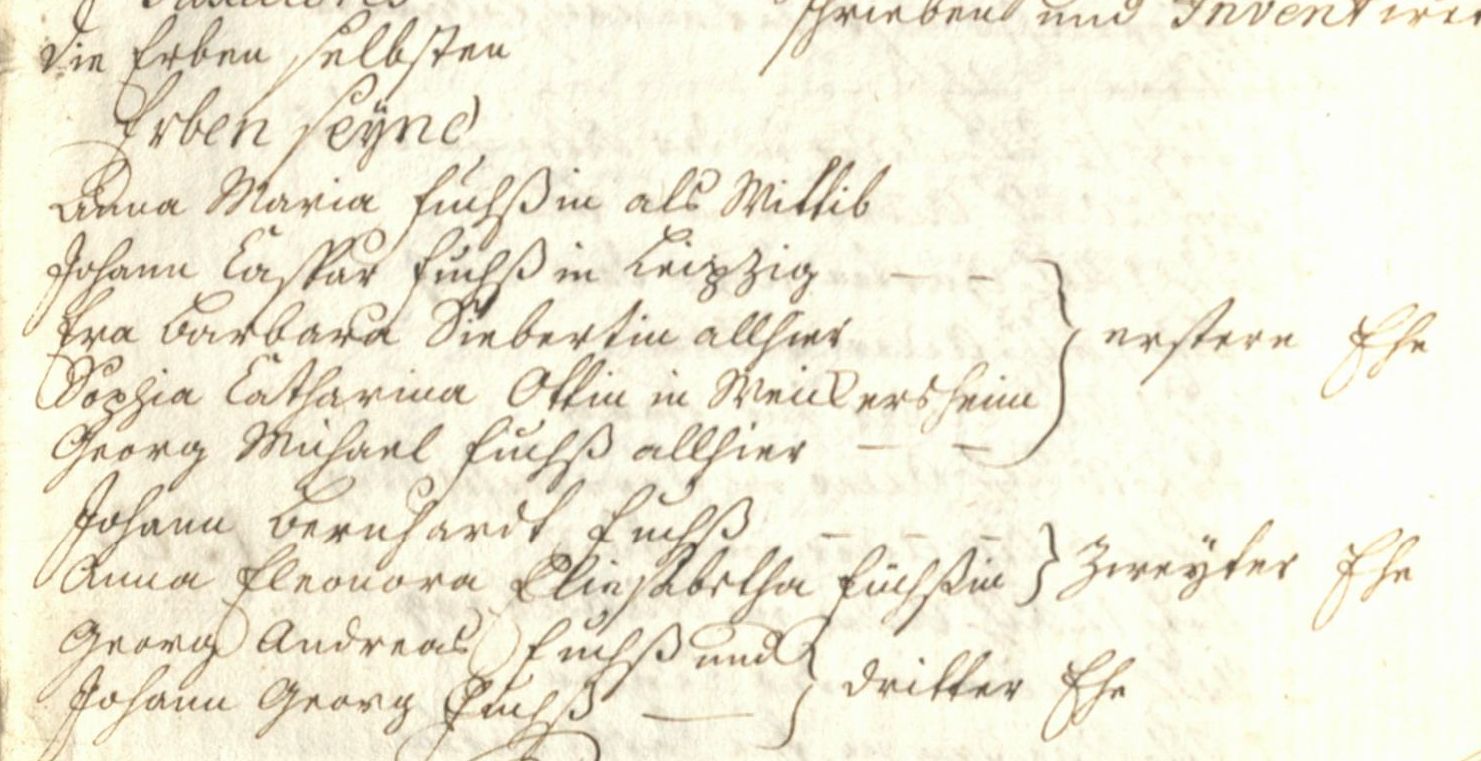 schrieben und Inventirt
die Erben selbsten
Erben seÿnd
Anna Maria Fuchßin als Wittib
Johann Caspar Fuchß in Leipzig — –
Eva Barbara Siebertin allhier
Sophia Catharina Ottin in Weickersheim } erstere Ehe
Georg Michael Fuchß allhier — –
Johann Bernhardt Fuchß – – –
Anna Eleonora Eliesabetha Fuchßin } Zweÿter Ehe
Georg Andreas Fuchß und
Johann Georg Fuchß — } dritter Ehe